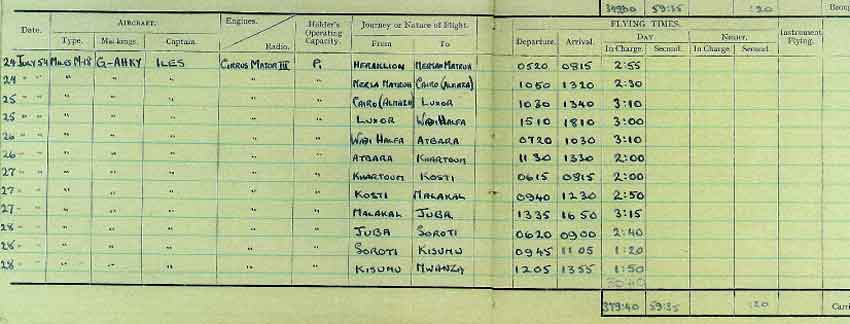 349:00 59:35 :20 Brou
Date. AIRCRAFT. Engines. Holder's Operating Capacity. Journey or Nature of Flight. FLYING TIMES. Instrument Flying.
Type. Markings. Captain. Radio. From To Departure. Arrival. DAY NIGHT.
In Charge. Second. In Charge. Second.
24 JULY 54 MILES M-18 G-AHKY ILES CIRRUS MAJOR III P1 HERAKLION MERSA MATRUH 0520 0815 2:55
24 " " " " " " " MERSA MATRUH CAIRO (ALMAZA) 1050 1320 2:30
25 " " " " " " " CAIRO (ALMAZA) LUXOR 1030 1340 3:10
25 " " " " " " " LUXOR WADI HALFA 1510 1810 3:00
26 " " " " " " " WADI HALFA ATBARA 0720 1030 3:10
26 " " " " " " " ATBARA KHARTOUM 1130 1330 2:00
27 " " " " " " " KHARTOUM KOSTI 0615 0815 2:00
27 " " " " " " " KOSTI MALAKAL 0940 1230 2:50
27 " " " " " " " MALAKAL JUBA 1335 1650 3:15
28 " " " " " " " JUBA SOROTI 0620 0900 2:40
28 " " " " " " " SOROTI KISUMU 0945 1105 1:20
28 " " " " " " " KISUMU MWANZA 1205 1355 1:50
379:40 59:35 :20 Carri